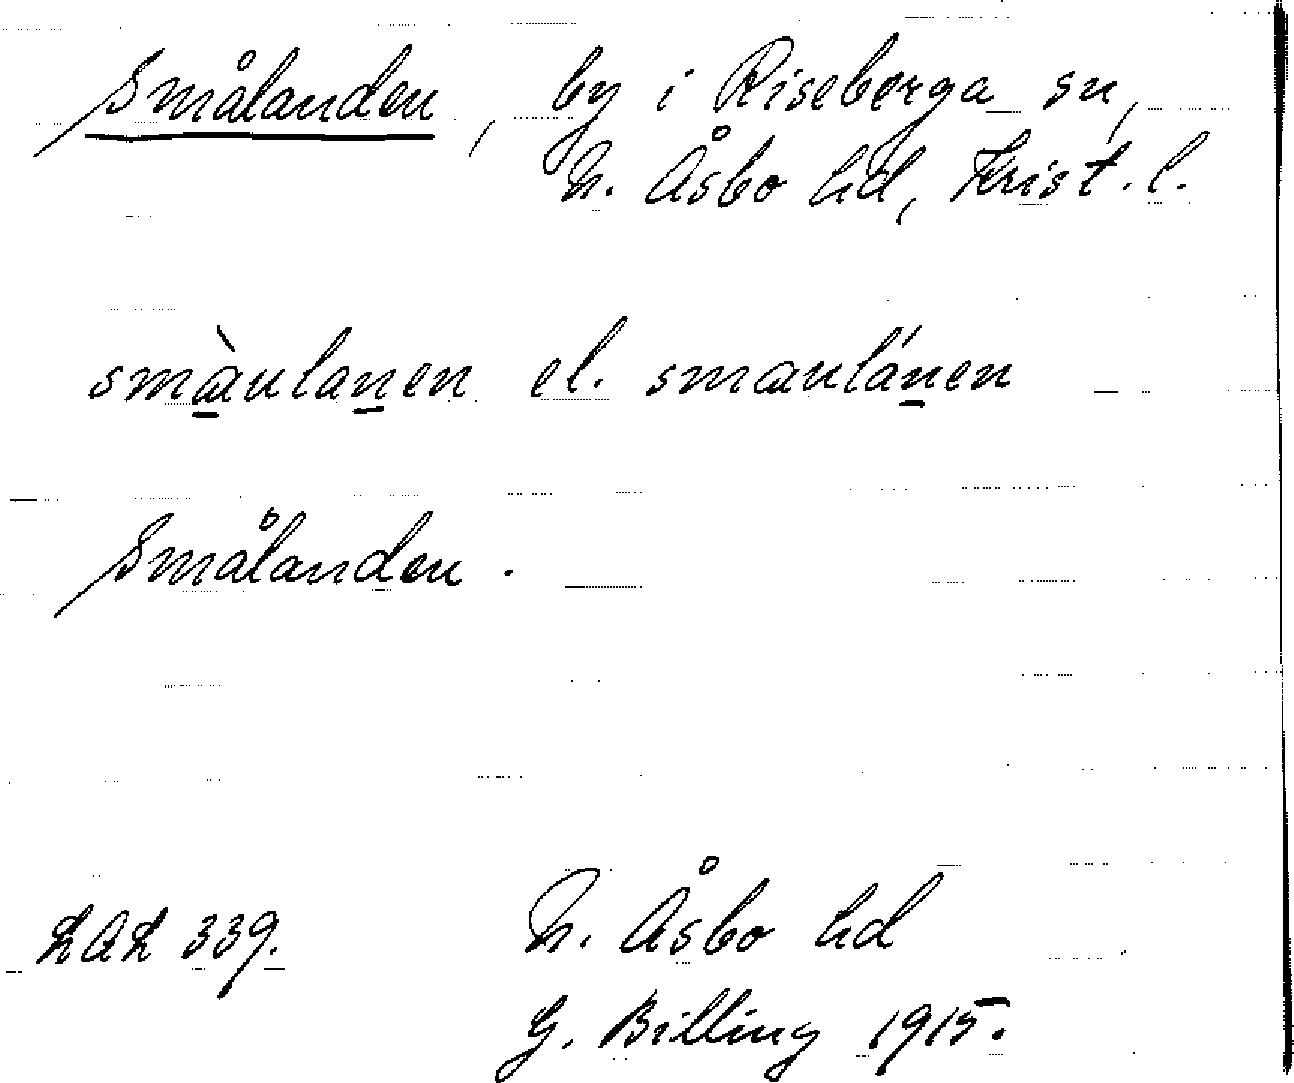 Smålanden, by i Riseberga sn,
N. Åsbo hd, Krist. l.
smæ̀ulanen el. smæulánen
Smålanden.
LAL 339.
N. Åsbo hd
G. Billing 1915.